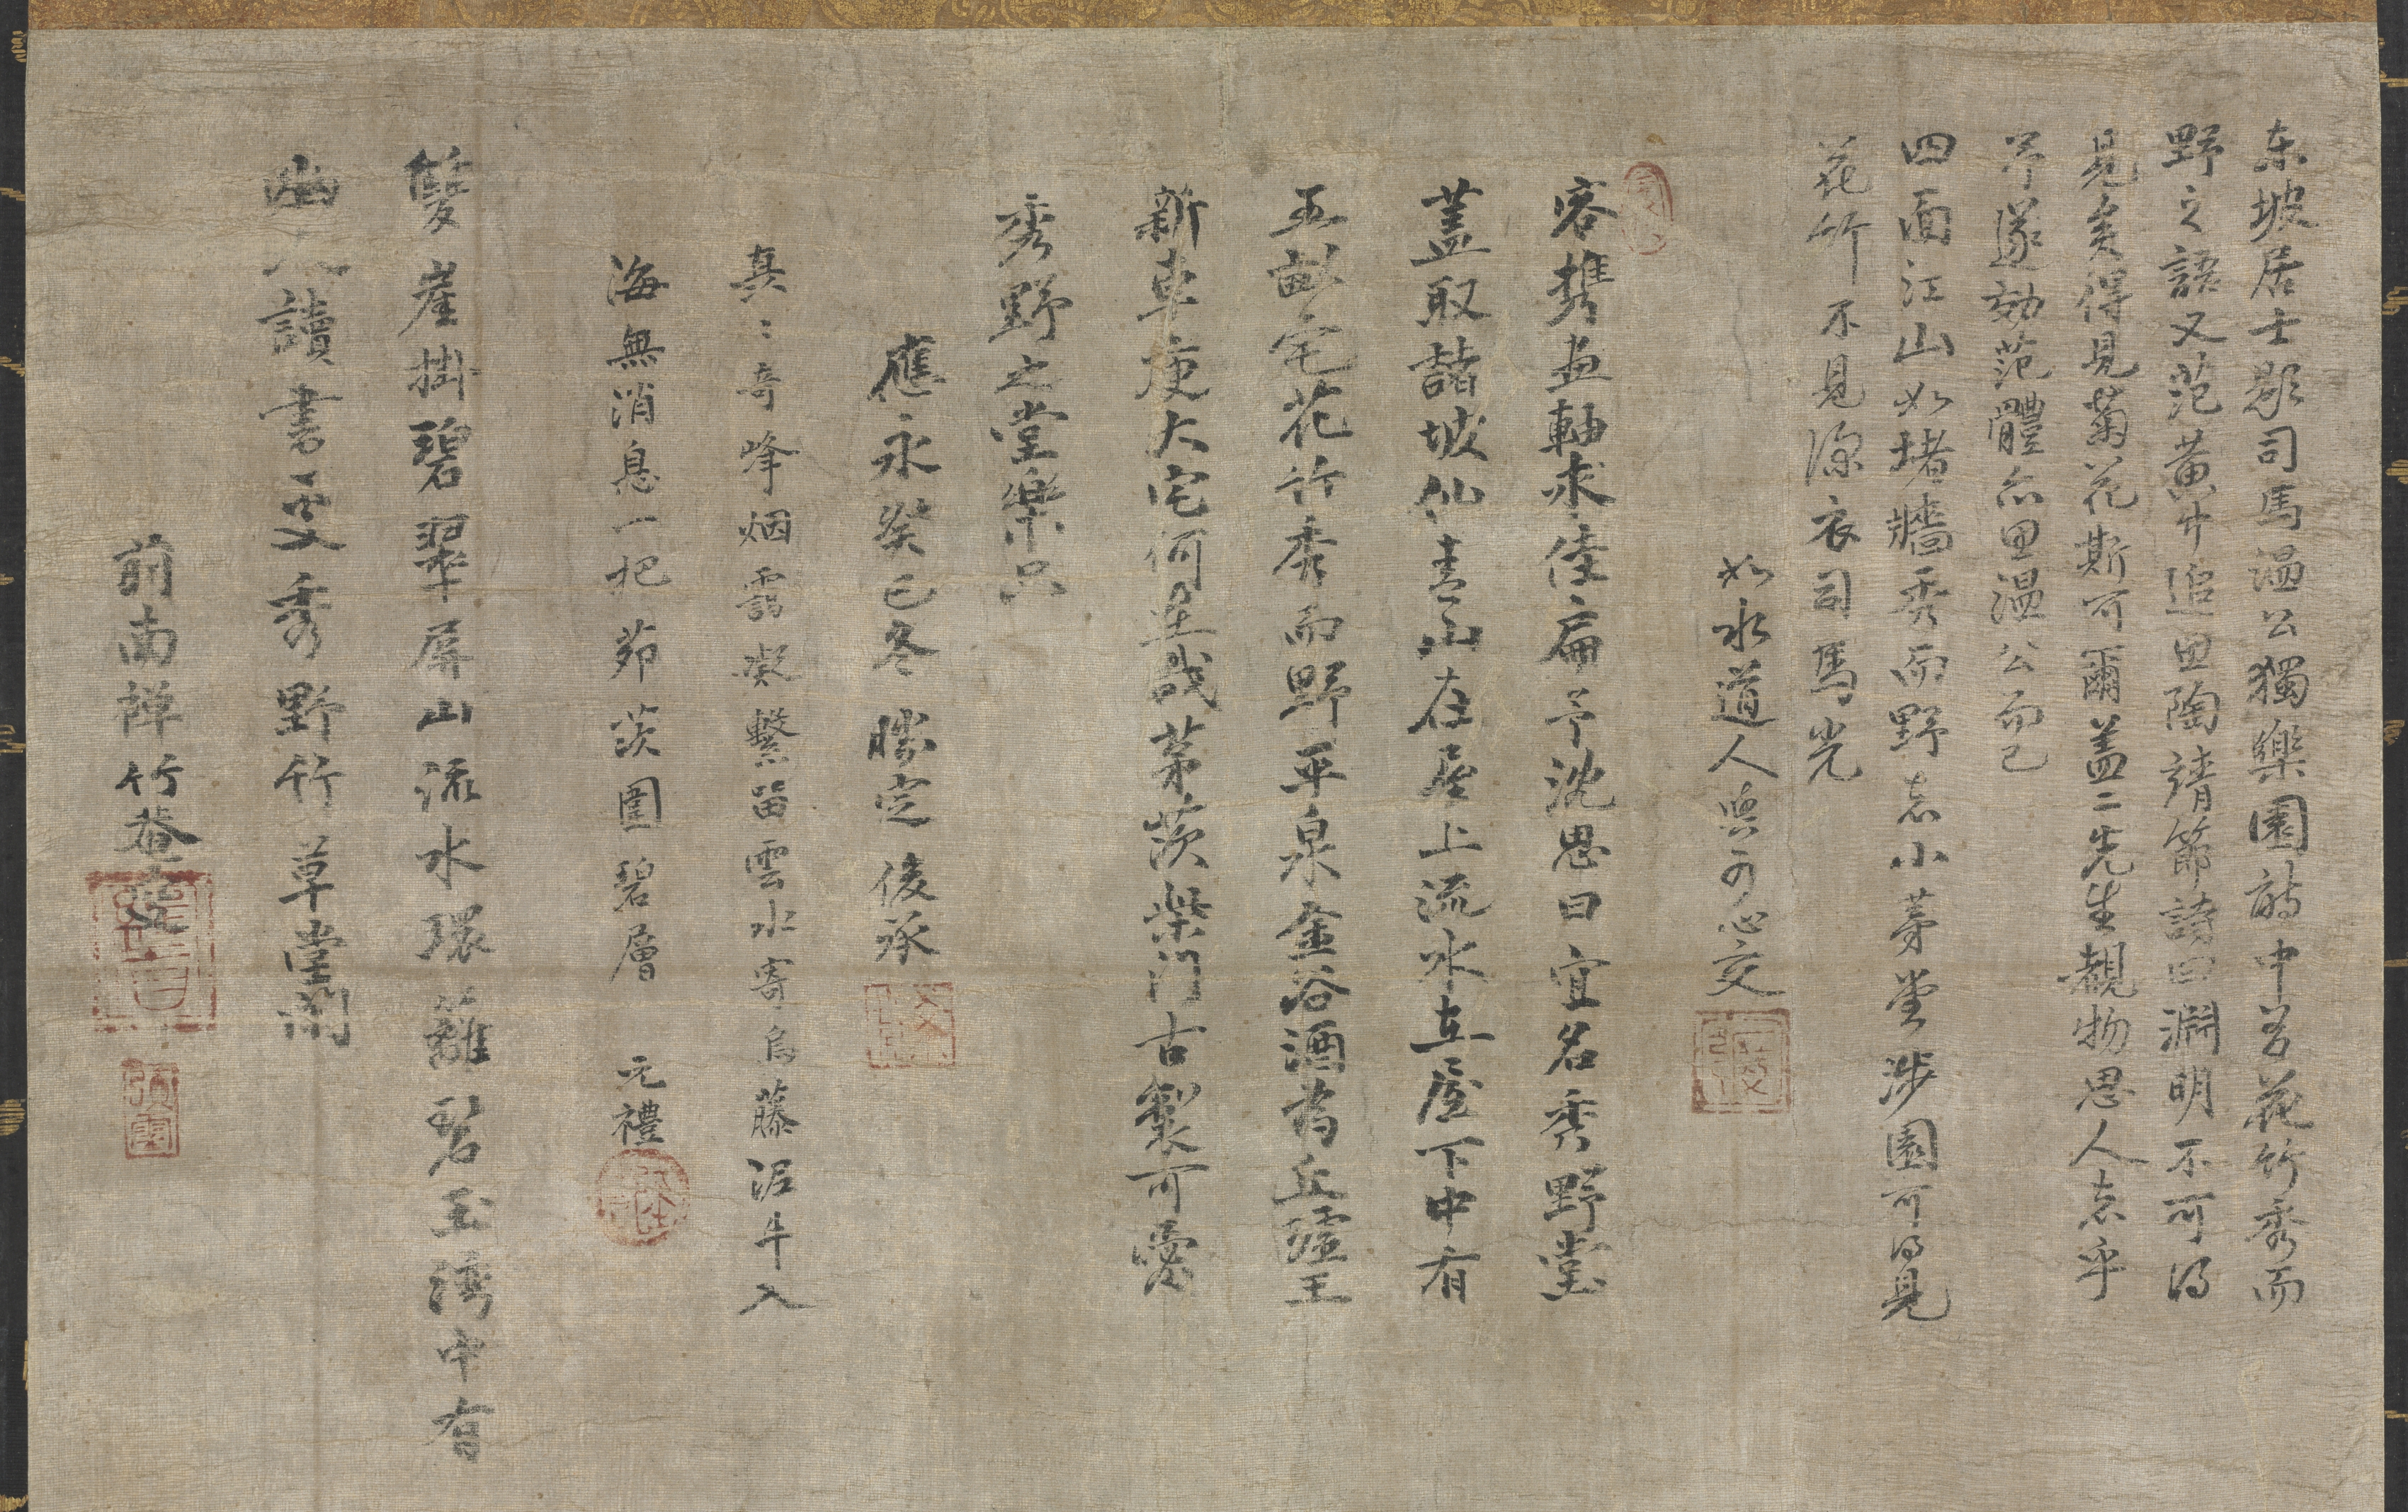 東坡居士題司馬温公獨樂園詩中有花竹秀而
野之語又范黄中追思陶靖節詩曰淵明不可得
見矣得見菊花斯可爾盖二先生覩物思人志乎
予遂効范體亦思温公而已
四面江山如堵牆秀而野志小茅堂涉園可得見
花竹不見深衣司馬光
如水道人與可心交
客携畫軸求佳扁予沈思曰宜名秀野堂
蓋取諸坡仙青山在屋上流水在屋下中有
五畝宅花竹秀而野平泉金谷酒為丘墟王
新車庾大宅何是哉茅茨柴門古製可愛
秀野之堂樂只
應永癸巳冬 勝定 俊承
真々奇峰烟靄凝繫留雲水寄烏藤泥牛入
海無消息一把茆茨圍碧層 元禮
雙崖掛碧翠屏山流水環籬碧玉灣中有
幽人讀書処秀野竹草堂間
前南禅竹菴